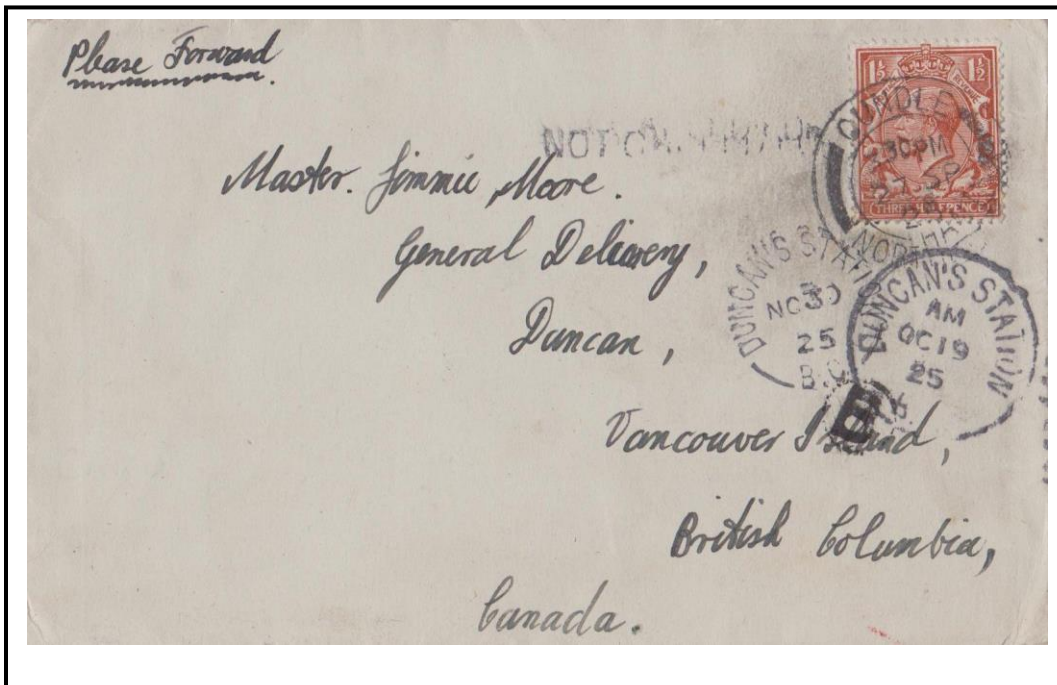 Please Forward
Master. Jimmie Moore.
General Delivery,
Duncan,
Vancouver Island,
British Columbia,
Canada.
1½ 1½
REVENUE
THREE HALFPENCE
OUNDLE
30PM
27 SP
25
NORTHA
NOT CALLED FOR
DUNCAN'S STATION
NO 30
25
B.C.
DUNCAN'S STATION
AM
OC 19
25